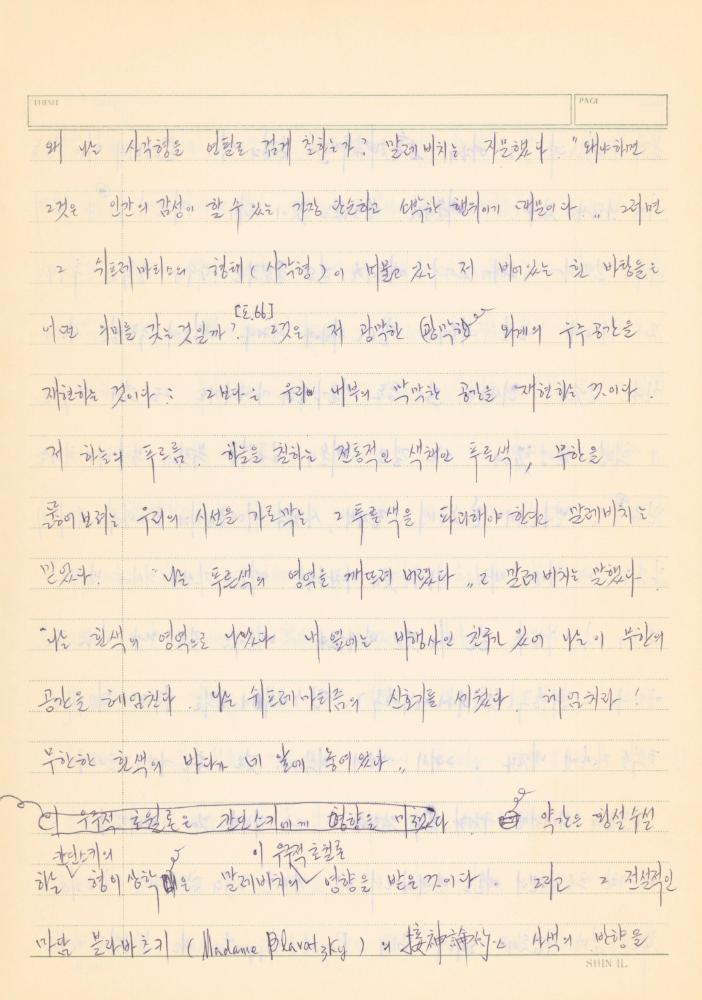 THEME
PAGE
왜 나는 사각형을 연필로 검게 칠하는가? 말레비치는 자문했다. "왜냐하면
그것은 인간의 감성이 할 수 있는 가장 단순하고 소박한 행위이기 때문이다". 그러면
그 쉬프레마티스의 형태(사각형)이 머물고 있는 저 비어있는 흰 바탕들은
어떤 의미를 갖는 것일까? [도.66] 그것은 저 광막한 광막한 외계의 우주공간을
재현하는 것이다: 그보다는 우리의 내부의 막막한 공간을 재현하는 것이다.
저 하늘의 푸르름. 하늘을 칠하는 전통적인 색채인 푸른색, 무한을
뚫어보려는 우리의 시선을 가로막는 그 푸른색을 파괴해야 한다고 말레비치는
믿었다. "나는 푸른색의 영역을 깨뜨려 버렸다"고 말레비치는 말했다.
"나는 흰색의 영역으로 나왔다 내 옆에는 비행사인 친구가 있어 나는 이 무한의
공간을 헤엄친다. 나는 쉬프레마티즘의 신호기를 세웠다. 헤엄쳐라!
무한한 흰색의 바다가 네 앞에 놓여있다"
이 우주적 초월론은 칸딘스키에게 영향을 미쳤다. 약간은 횡설수설
칸딘스키의 이 우주적 초월론
하는 형이상학은 말레비치의 영향을 받은 것이다. 그리고 그 전설적인
마담 블라바츠키 (Madame Blavatzky)의 接神論的 사색의 반향을
SHIN IL